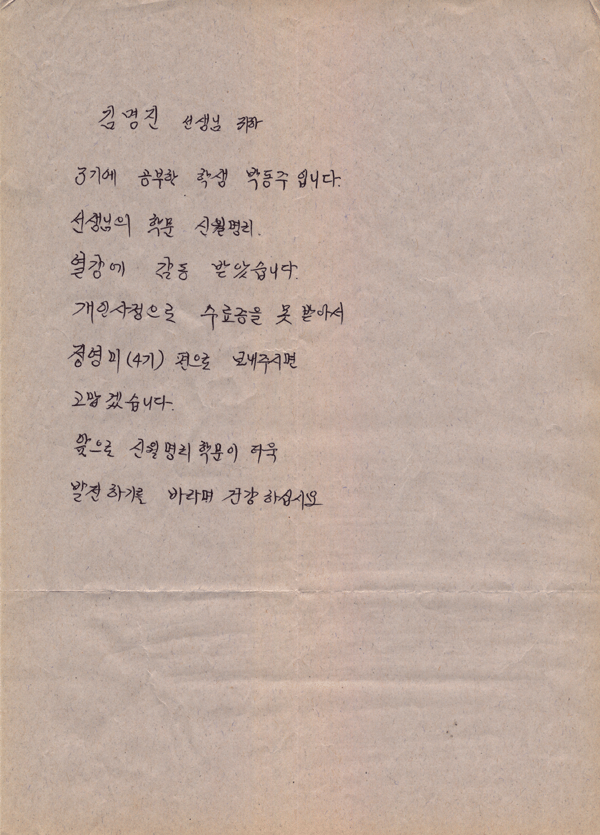 김명진 선생님 귀하
3기에 공부한 학생 박동주 입니다.
선생님의 학문 신월명리.
열강에 감동 받았습니다.
개인사정으로 수료증을 못 받아서
정영미(4기) 편으로 보내주시면
고맙겠습니다.
앞으로 신월명리학문이 더욱
발전하기를 바라며 건강하십시요